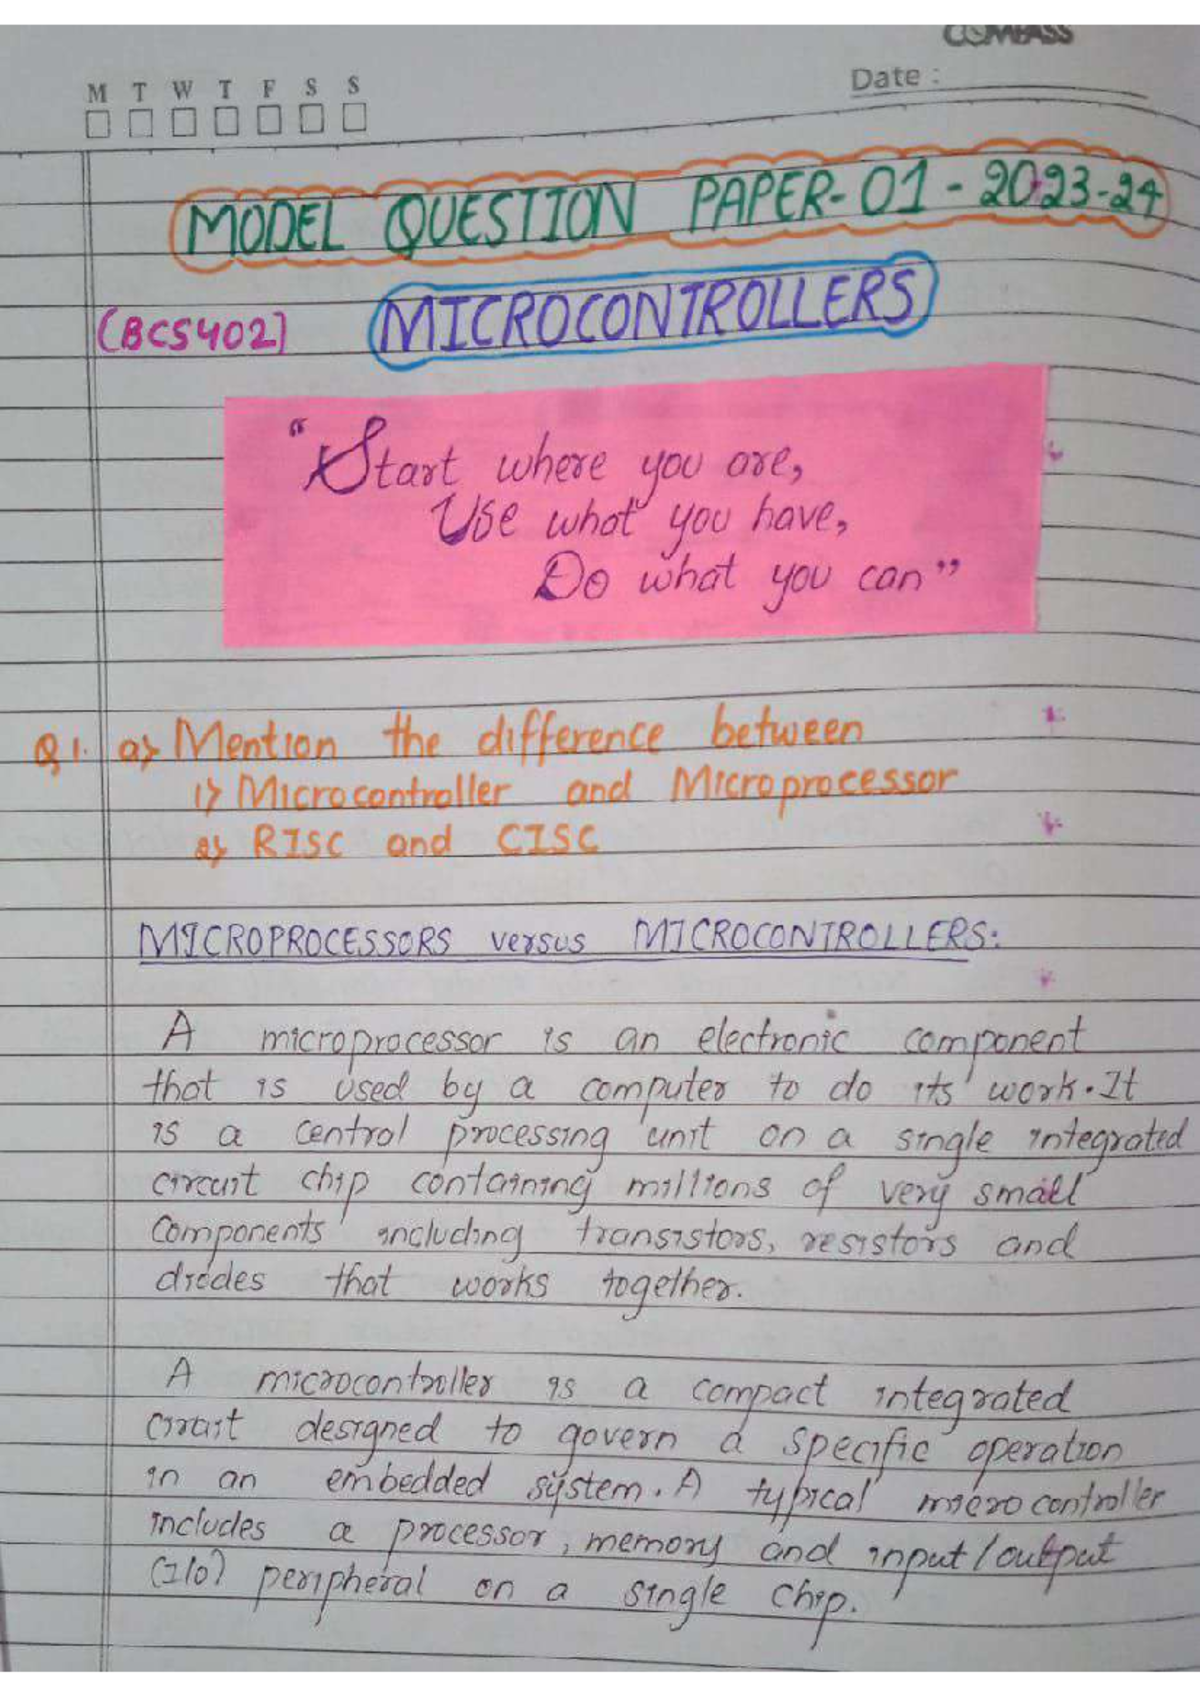 COMPASS
M T W T F S S
Date :
MODEL QUESTION PAPER-01-2023-24
(BCS402) MICROCONTROLLERS
"Start where you are,
Use what you have,
Do what you can"
Q1. a) Mention the difference between
1) Microcontroller and Microprocessor
2) RISC and CISC
MICROPROCESSORS versus MICROCONTROLLERS:
A microprocessor is an electronic component
that is used by a computer to do its work. It
is a central processing unit on a single integrated
circuit chip containing millions of very small
components including transistors, resistors and
diodes that works together.
A microcontroller is a compact integrated
circuit designed to govern a specific operation
in an embedded system. A typical microcontroller
includes a processor, memory and input/output
(I/O) peripheral on a single chip.